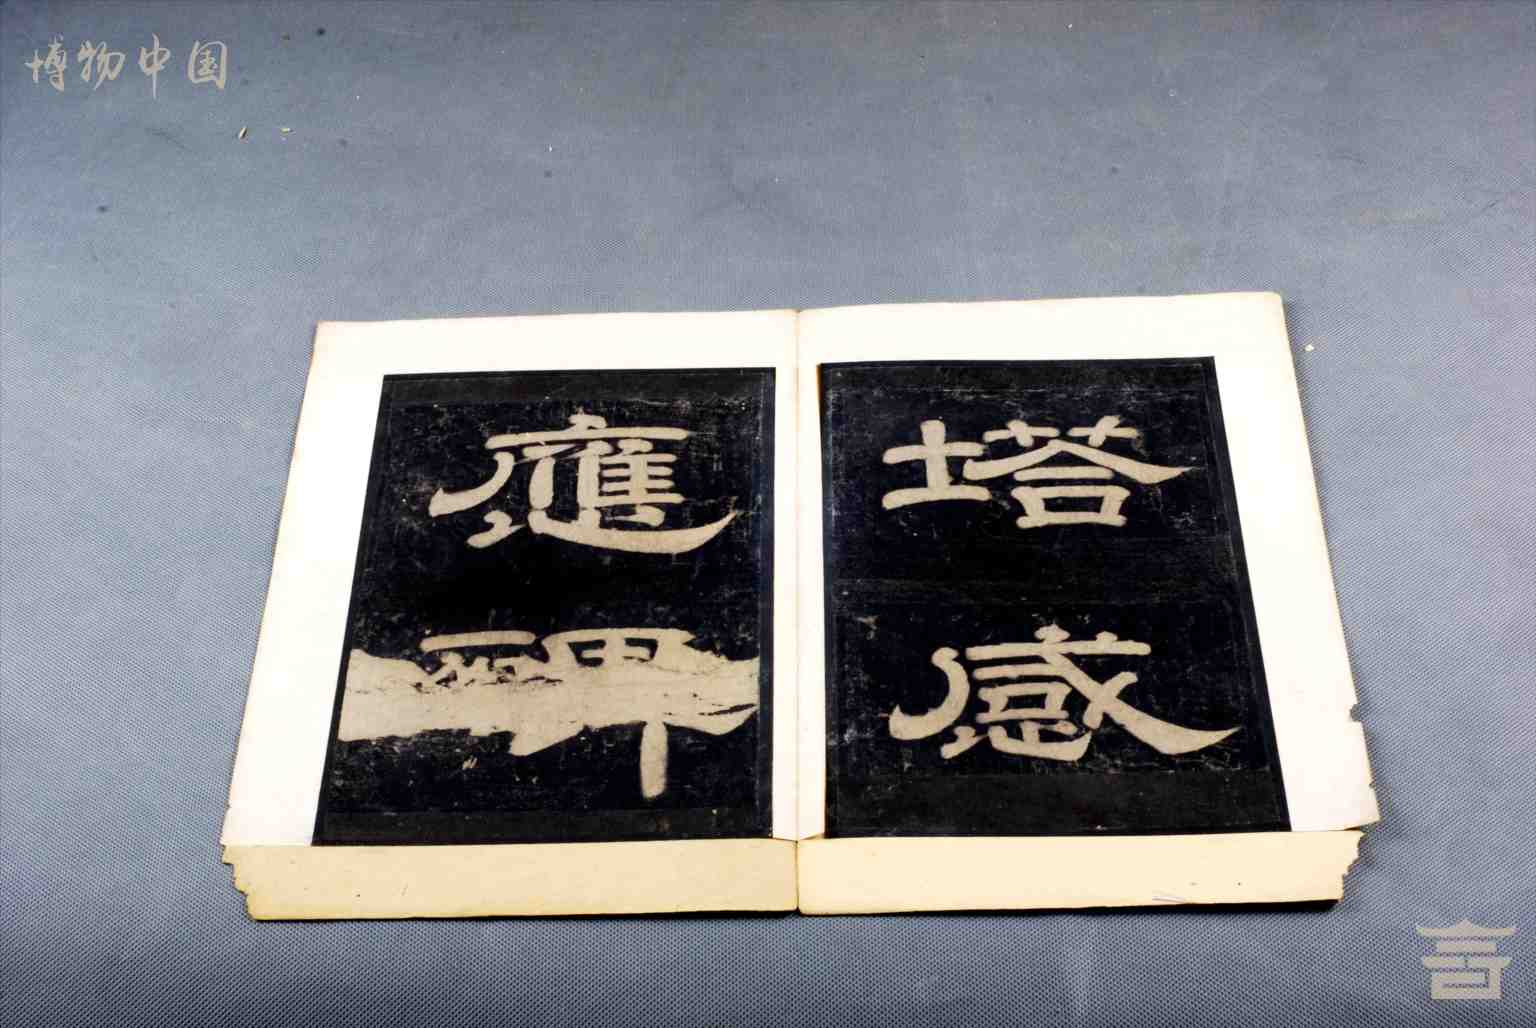 博物中国
塔感
應碑